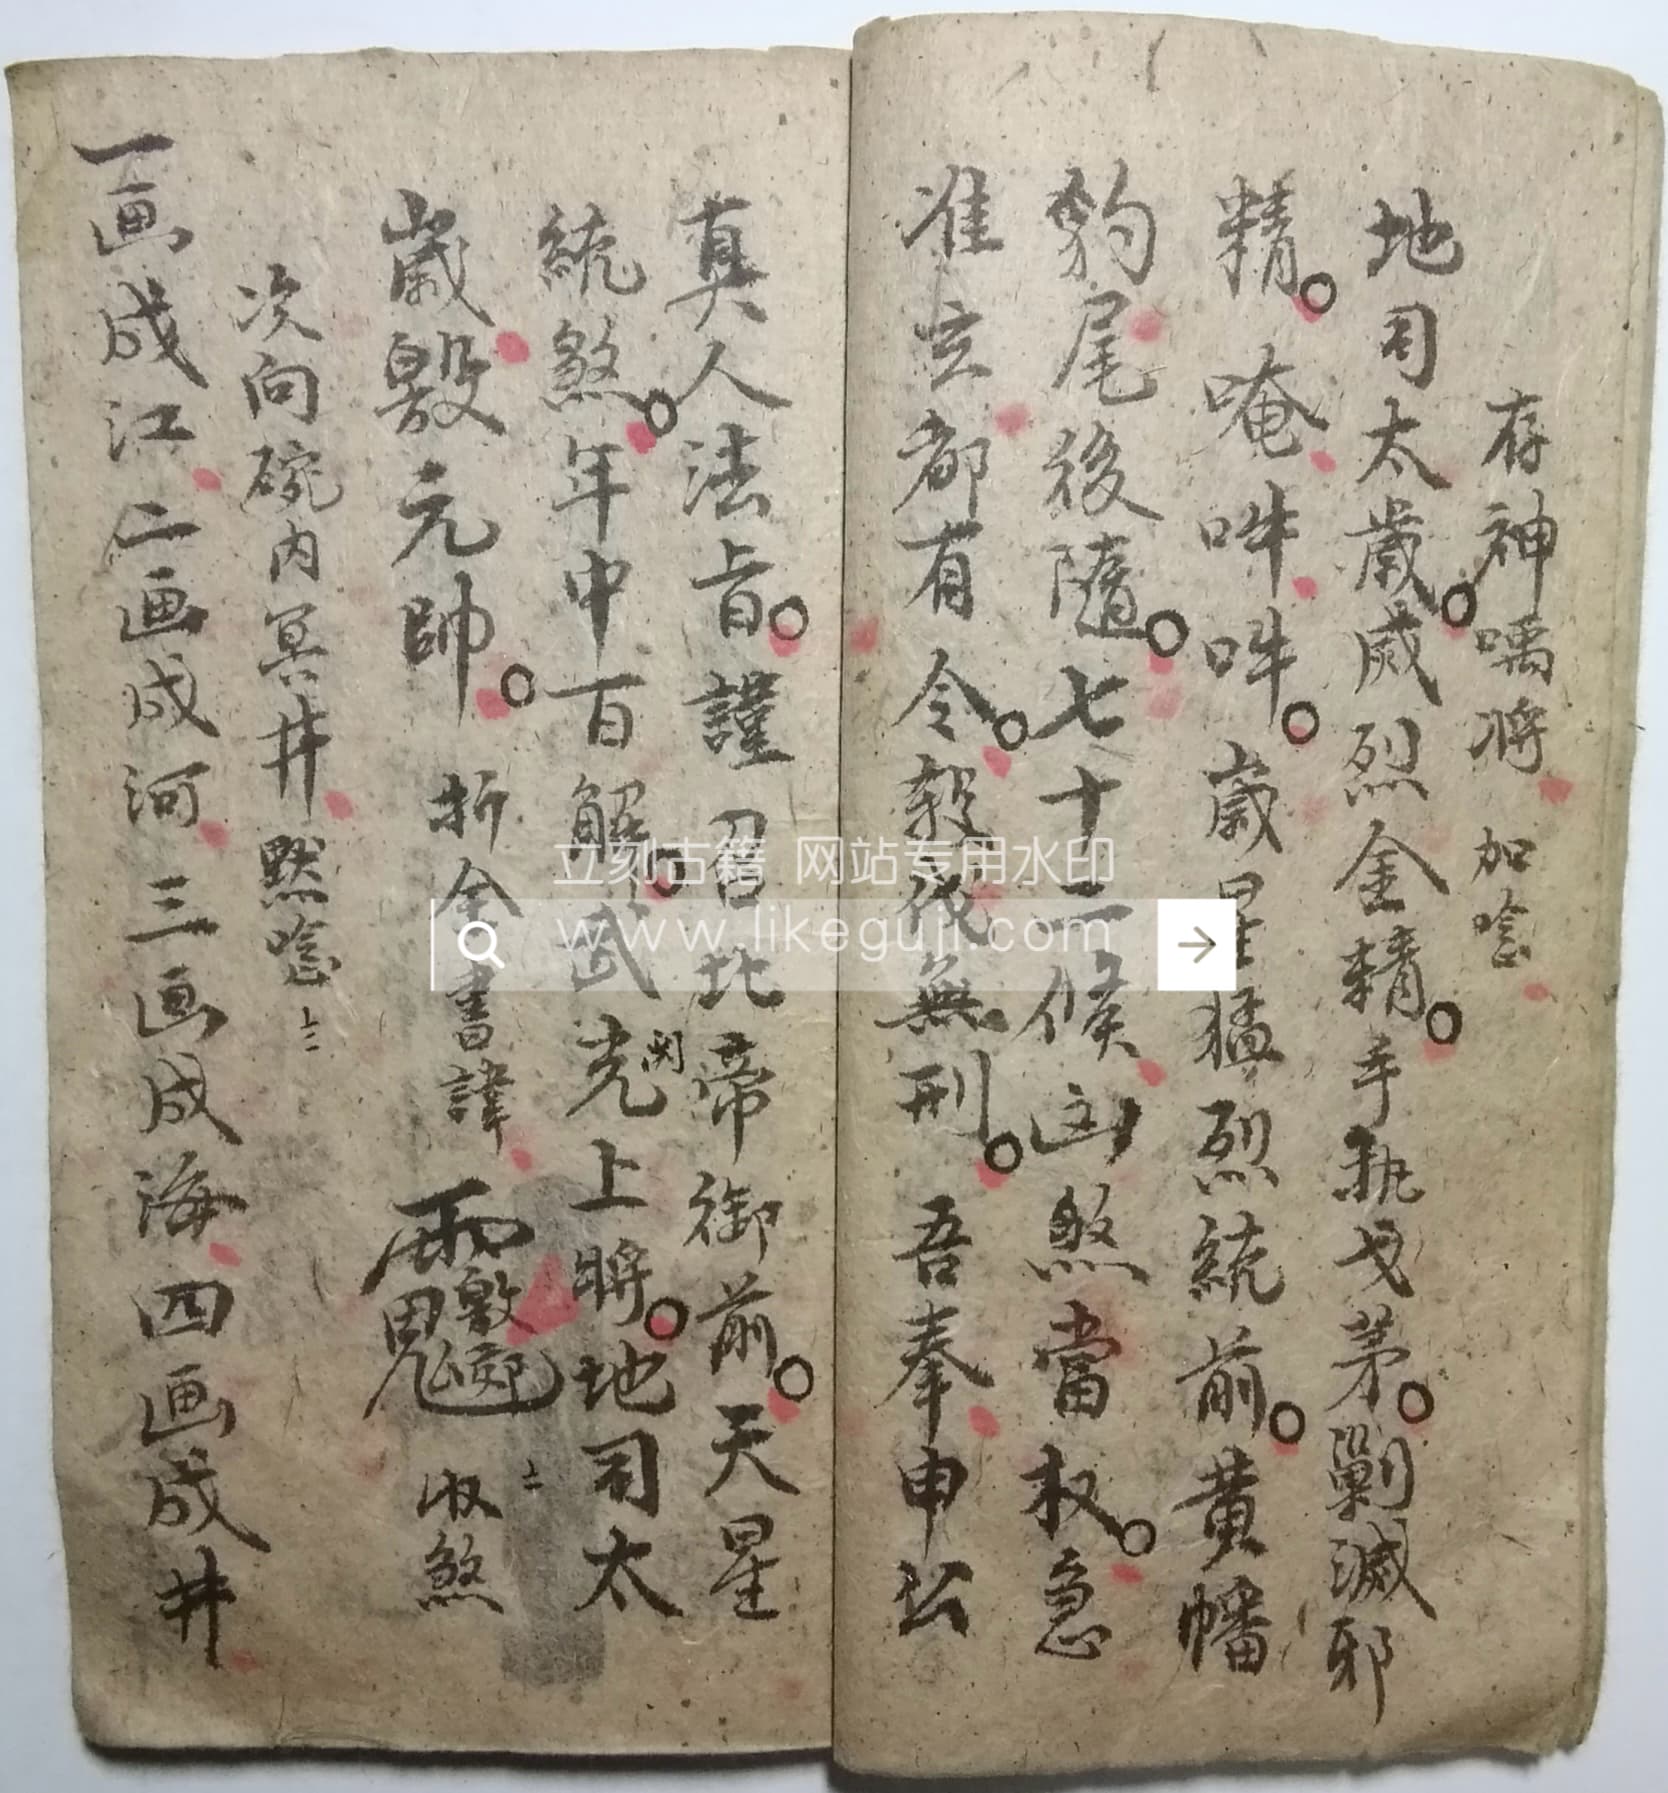 存神噀將 加唸
地司太歲威烈金精手執戈茅剿滅邪
精唵吽吽歲星猛烈統前黄幡
豹尾後隨七十二候凶煞當权急
准玄都有令殺伐無刑吾奉申公
真人法旨謹召北帝御前天星
統煞年中百解武光上將地司太
関
歲殷元帥 折金書諱 收煞
次向碗内冥井默唸
一画成江二画成河三画成海四画成井
立刻古籍 网站专用水印
www.likeguji.com